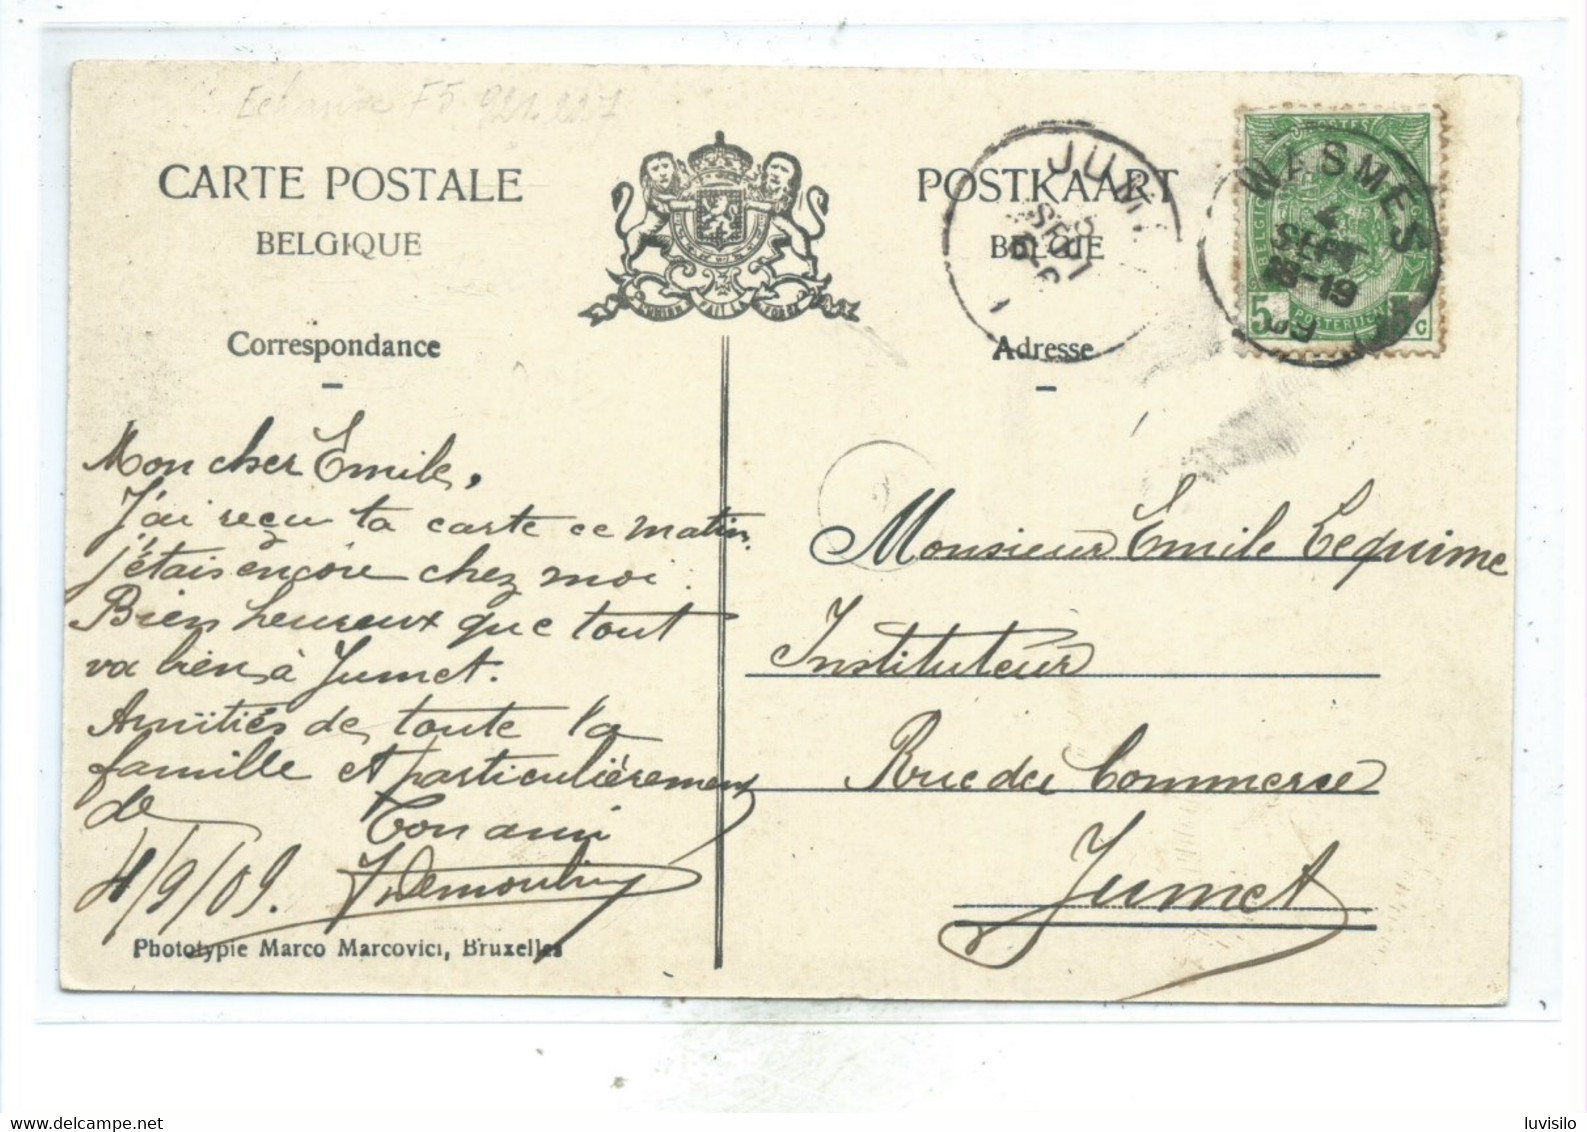 CARTE POSTALE
BELGIQUE
POSTKAART
BELGIE
Correspondance
Adresse
L'UNION FAIT LA FORCE
WASMES
4
SEPT
18-19
09
POSTES
POSTERIJEN
5
5 C
Mon cher Emile,
J'ai reçu ta carte ce matin.
j'étais encore chez moi.
Bien heureux que tout
va bien à Jumet.
Amitiés de toute la
famille et particulièrement
de
Ton ami
4/9/09. Demoulin
Phototypie Marco Marcovici, Bruxelles
Monsieur Emile Lequime
Instituteur
Rue du Commerce
Jumet
delcampe.net
luvisilo